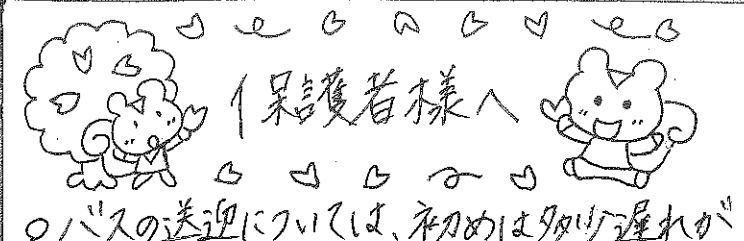 保護者様へ
○バスの送迎については、初めは多少遅れが